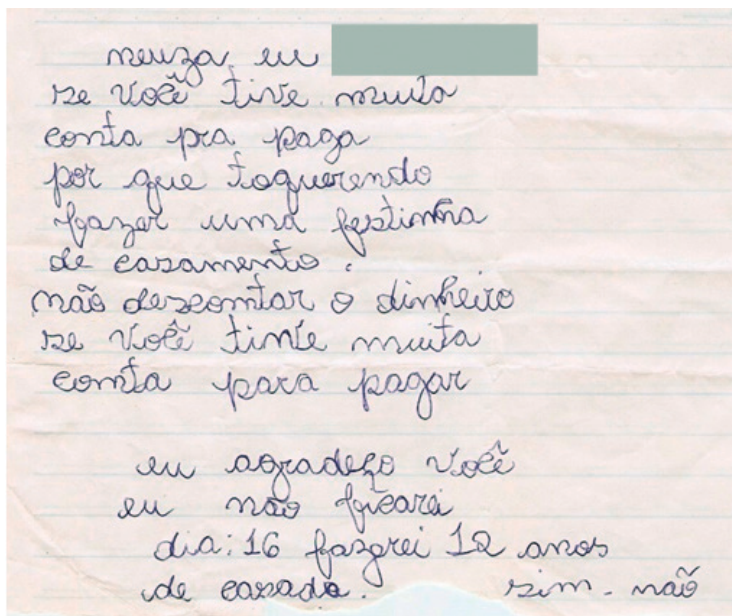 neuza eu
se você tive muita
conta pra paga
por que toquerendo
fazer uma festinha
de casamento.
não descontar o dinheiro
se você tinve muita
conta para pagar
eu agradeço você
eu não ficarei
dia: 16 fazerei 12 anos
de casada. sim - não